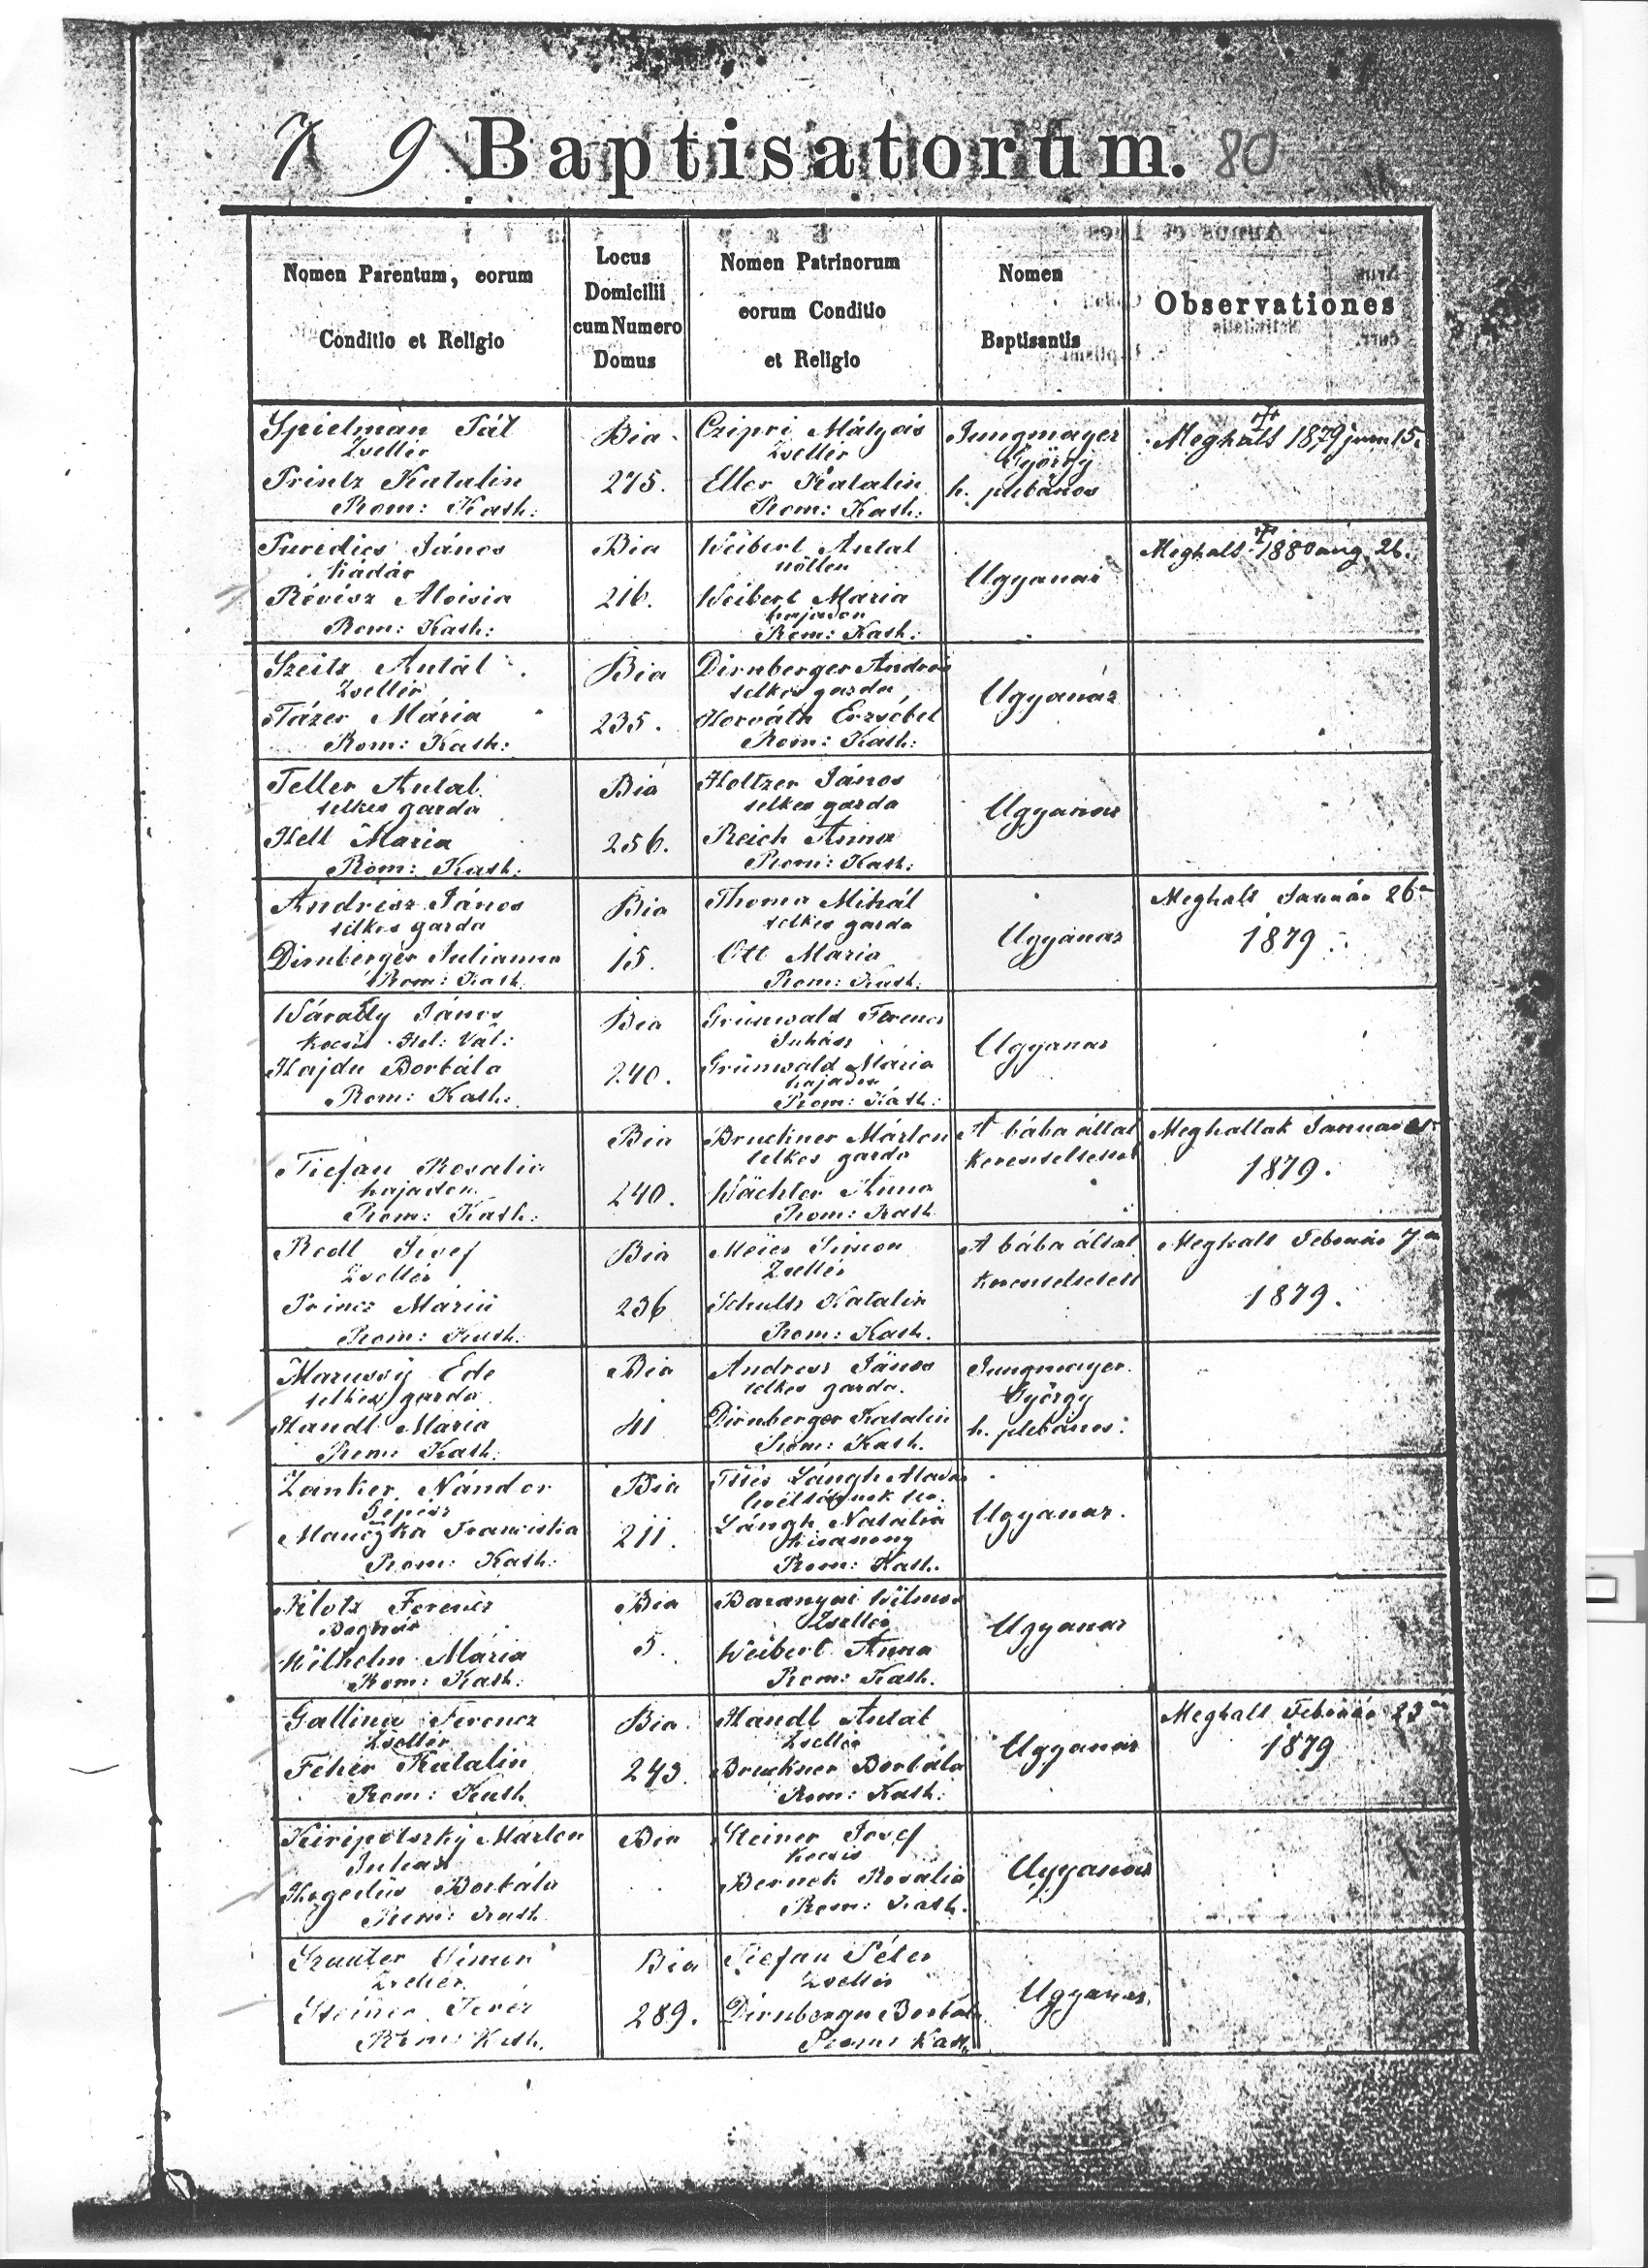 7 9 Baptisatorum. 80
Nomen Parentum, eorum
Conditio et Religio
Locus
Domicilii
cum Numero
Domus
Nomen Patrinorum
eorum Conditio
et Religio
Nomen
Baptisantis
Observationes
Spielman Pál
Zsellér
Printz Katalin
Rom: Kath:
Bia
275.
Czipri Mátyás
Zsellér
Eller Katalin
Rom: Kath:
Jungmayer
György
h. plebános
Meghalt 1879 jun 15.
Turedics János
Kádár
Révész Aloisia
Rom: Kath:
Bia
216.
Weibert Antal
nőtlen
Weibert Maria
hajadon
Rom: Kath:
Ugyanaz
Meghalt 1880 aug. 26.
Szeitz Antál
Zsellér
Tázer Mária
Rom: Kath:
Bia
235.
Dirnberger András
telkes gazda
Horváth Erzsébet
Rom: Kath:
Ugyanáz
Teller Antal
telkes gazda
Hell Maria
Rom: Kath:
Bia
256.
Holtzer János
telkes gazda
Reich Anna
Rom: Kath:
Ugyanaz
Andrisz János
telkes gazda
Dirnberger Julianna
Rom: Kath.
Bia
15.
Thoma Mihál
telkes gazda
Ott Maria
Rom: Kath.
Ugyanaz
Meghalt Január 26
1879.
Várady János
Kocsis Hel: Val:
Hajdu Borbála
Rom: Kath:
Bia
240.
Grünwald Ferencz
Juhász
Grünwald Mária
hajadon
Rom: Kath:
Ugyanaz
Tiefán Rosalia
hajadon
Rom: Kath:
Bia
240.
Bruckner Márton
telkes gazda
Wächter Anna
Rom: Kath
A bába által
kereszteltetett
Meghaltak Január
1879.
Redl Jósef
Zsellér
Princz Mária
Rom: Kath.
Bia
236
Meier Simon
Zsellér
Schultz Katalin
Rom: Kath.
A bába által
kereszteltetett
Meghalt Február 7
1879.
Marussy Ede
telkes gazda
Handl Maria
Rom: Kath:
Bia
41
Andresz János
telkes gazda.
Dirnberger Katalin
Rom: Kath.
Jungmayer
György
h. plebános:
Zanker Nándor
Gépész
Mauczka Franciska
Rom: Kath:
Bia
211.
Lángh
Lángh Natalia
kisasszony
Rom: Kath.
Ugyanaz.
Klotz Ferencz
Bognár
Wilhelm Mária
Rom: Kath:
Bia
5.
Baranyai Vilmos
Zsellér
Weibert Anna
Rom: Kath.
Ugyanaz
Gallina Ferencz
Zsellér
Fehér Katalin
Rom: Kath
Bia
243.
Handl Antal
Zsellér
Bruckner Borbála
Rom: Kath:
Ugyanaz
Meghalt Február 23
1879
Kiripolszky Márton
Juhász
Hegedüs Borbála
Rom: Kath
Bia
Steiner Josef
Kocsis
Bernek Rosália
Rom: Kath.
Ugyanaz
Szauter Simon
Zsellér
Steiner Teréz
Rom: Kath.
Bia
289.
Tiefan Péter
Zsellér
Dirnberger Borbála
Rom: Kath.
Ugyanaz.